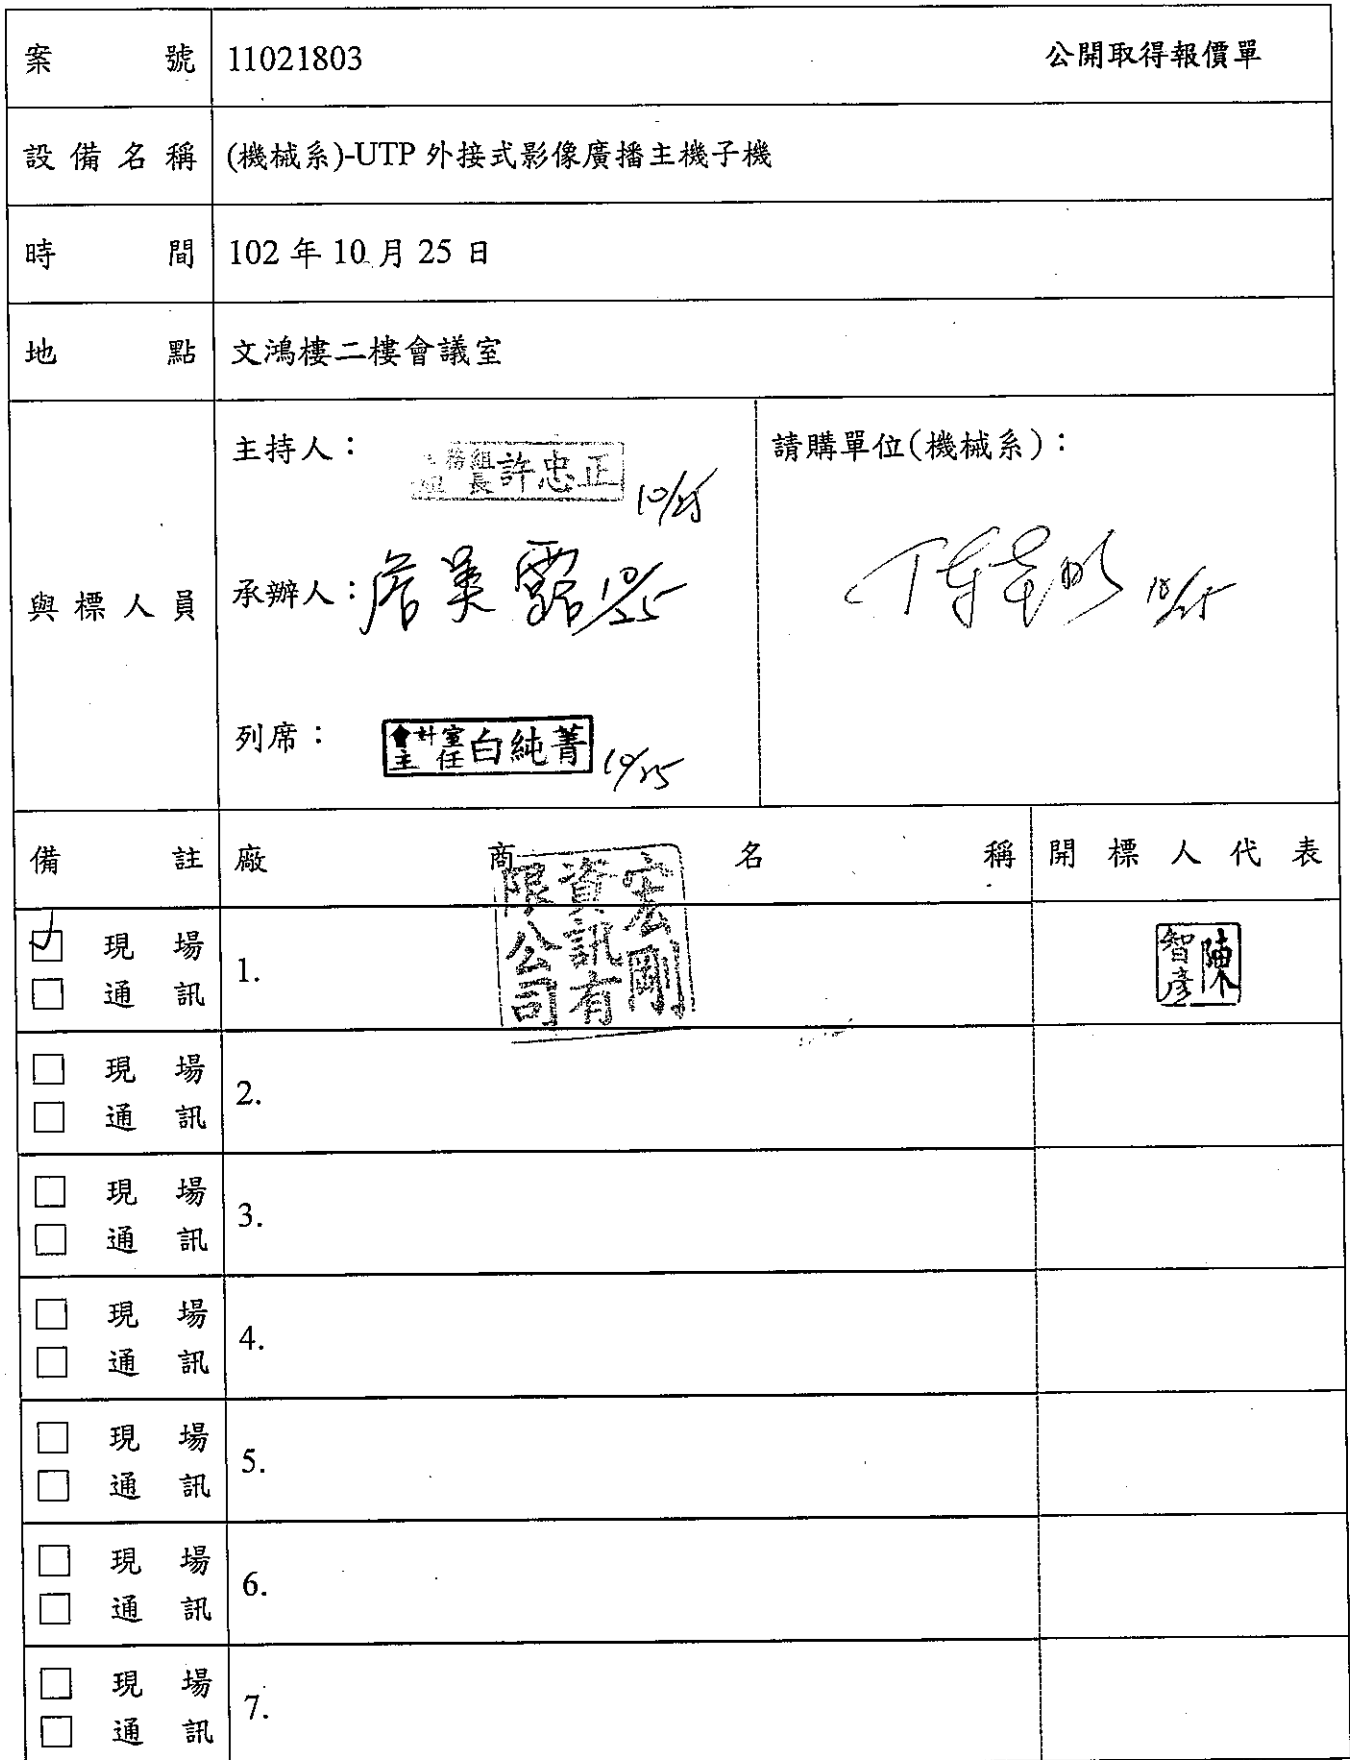 案號 11021803 公開取得報價單
設備名稱 (機械系)-UTP 外接式影像廣播主機子機
時間 102 年 10 月 25 日
地點 文鴻樓二樓會議室
與標人員
主持人：
組長 許忠正 10/25
承辦人： 10/25
列席：
會計室主任 白純菁 10/25
請購單位(機械系)：
10/25
備註 廠商名稱 開標人代表
現場
通訊
1.
宏剛資訊有限公司
陳智彥
現場
通訊
2.
現場
通訊
3.
現場
通訊
4.
現場
通訊
5.
現場
通訊
6.
現場
通訊
7.